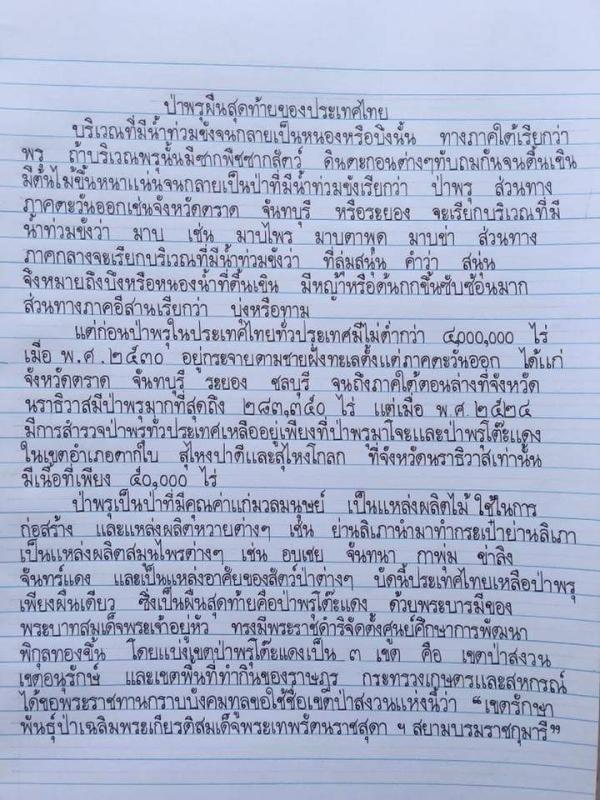 ป่าพรุผืนสุดท้ายของประเทศไทย
บริเวณที่มีน้ำท่วมขังจนกลายเป็นหนองหรือบึงนั้น ทางภาคใต้เรียกว่า
พรุ ถ้าบริเวณพรุนั้นมีซากพืชซากสัตว์ ดินตะกอนต่างๆทับถมกันจนตื้นเขิน
มีต้นไม้ขึ้นหนาแน่นจนกลายเป็นป่าที่มีน้ำท่วมขังเรียกว่า ป่าพรุ ส่วนทาง
ภาคตะวันออกเช่นจังหวัดตราด จันทบุรี หรือระยอง จะเรียกบริเวณที่มี
น้ำท่วมขังว่า มาบ เช่น มาบไพร มาบตาพุด มาบข่า ส่วนทาง
ภาคกลางจะเรียกบริเวณที่มีน้ำท่วมขังว่า ที่ลุ่มสนุ่น คำว่า สนุ่น
จึงหมายถึงบึงหรือหนองน้ำที่ตื้นเขิน มีหญ้าหรือต้นกกขึ้นซับซ้อนมาก
ส่วนทางภาคอีสานเรียกว่า บุ่งหรือทาม
แต่ก่อนป่าพรุในประเทศไทยทั่วประเทศมีไม่ต่ำกว่า ๔,๐๐๐,๐๐๐ ไร่
เมื่อ พ.ศ.๒๕๓๐ อยู่กระจายตามชายฝั่งทะเลตั้งแต่ภาคตะวันออก ได้แก่
จังหวัดตราด จันทบุรี ระยอง ชลบุรี จนถึงภาคใต้ตอนล่างที่จังหวัด
นราธิวาสมีป่าพรุมากที่สุดถึง ๒๘๓,๓๕๐ ไร่ แต่เมื่อ พ.ศ.๒๕๒๔
มีการสำรวจป่าพรุทั่วประเทศเหลืออยู่เพียงที่ป่าพรุบาเจาะและป่าพรุโต๊ะแดง
ในเขตอำเภอตากใบ สุไหงปาดีและสุไหงโกลก ที่จังหวัดนราธิวาสเท่านั้น
มีเนื้อที่เพียง ๕๐,๐๐๐ ไร่
ป่าพรุเป็นป่าที่มีคุณค่าแก่มวลมนุษย์ เป็นแหล่งผลิตไม้ ใช้ในการ
ก่อสร้าง และแหล่งผลิตหวายต่างๆ เช่น ย่านลิเภานำมาทำกระเป๋าย่านลิเภา
เป็นแหล่งผลิตสมุนไพรต่างๆ เช่น อบเชย จันทนา กาฬพุ่ม ช้าลิง
จันทร์แดง และเป็นแหล่งอาศัยของสัตว์ป่าต่างๆ บัดนี้ประเทศไทยเหลือป่าพรุ
เพียงผืนเดียว ซึ่งเป็นผืนสุดท้ายคือป่าพรุโต๊ะแดง ด้วยพระบารมีของ
พระบาทสมเด็จพระเจ้าอยู่หัว ทรงมีพระราชดำริจัดตั้งศูนย์ศึกษาการพัฒนา
พิกุลทองขึ้น โดยแบ่งเขตป่าพรุโต๊ะแดงเป็น ๓ เขต คือ เขตป่าสงวน
เขตอนุรักษ์ และเขตพื้นที่ทำกินของราษฎร กระทรวงเกษตรและสหกรณ์
ได้ขอพระราชทานกราบบังคมทูลขอใช้ชื่อเขตป่าสงวนแห่งนี้ว่า “เขตรักษา
พันธุ์ป่าเฉลิมพระเกียรติสมเด็จพระเทพรัตนราชสุดา ฯ สยามบรมราชกุมารี”